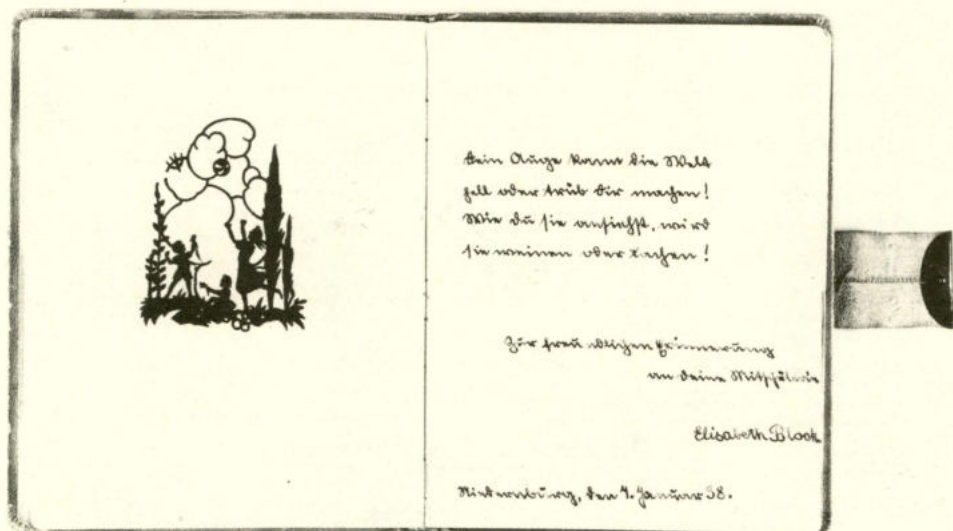 Dein Auge kann die Welt
hell oder trüb dir machen!
Wie du sie ansiehst, wird
sie weinen oder lachen!
Zur freundlichen Erinnerung
an Deine Mitschülerin
Elisabeth Block
Niedernburg, den 7. Januar 38.